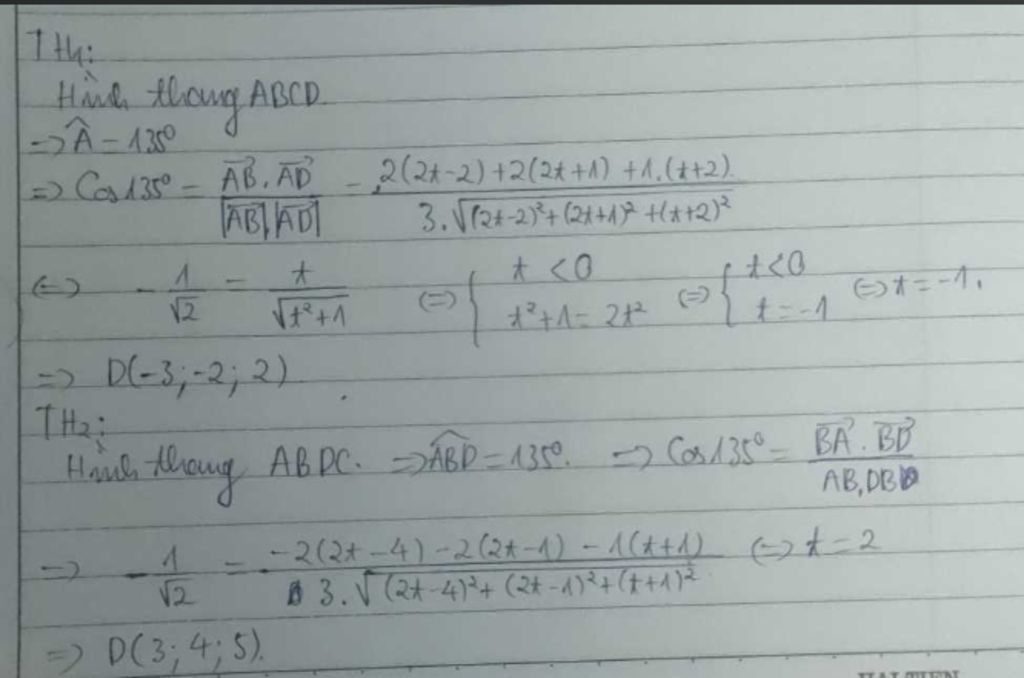 TH₁:
Hình thang ABCD
=> Â = 135°
=> Cos135° = \frac{\vec{AB}.\vec{AD}}{|\vec{AB}|.|\vec{AD}|} = \frac{2(2t-2)+2(2t+1)+1.(t+2)}{3.\sqrt{(2t-2)²+(2t+1)²+(t+2)²}}
<=> -\frac{1}{\sqrt{2}} = \frac{t}{\sqrt{t²+1}} <=> { t < 0 ; t²+1 = 2t² <=> { t < 0 ; t = -1 <=> t = -1.
=> D(-3;-2;2)
TH₂:
Hình thang ABDC. => \widehat{ABD} = 135°. => Cos135° = \frac{\vec{BA}.\vec{BD}}{AB.DB}
=> -\frac{1}{\sqrt{2}} = \frac{-2(2t-4)-2(2t-1)-1(t+1)}{3.\sqrt{(2t-4)²+(2t-1)²+(t+1)²}} <=> t = 2
=> D(3;4;5).